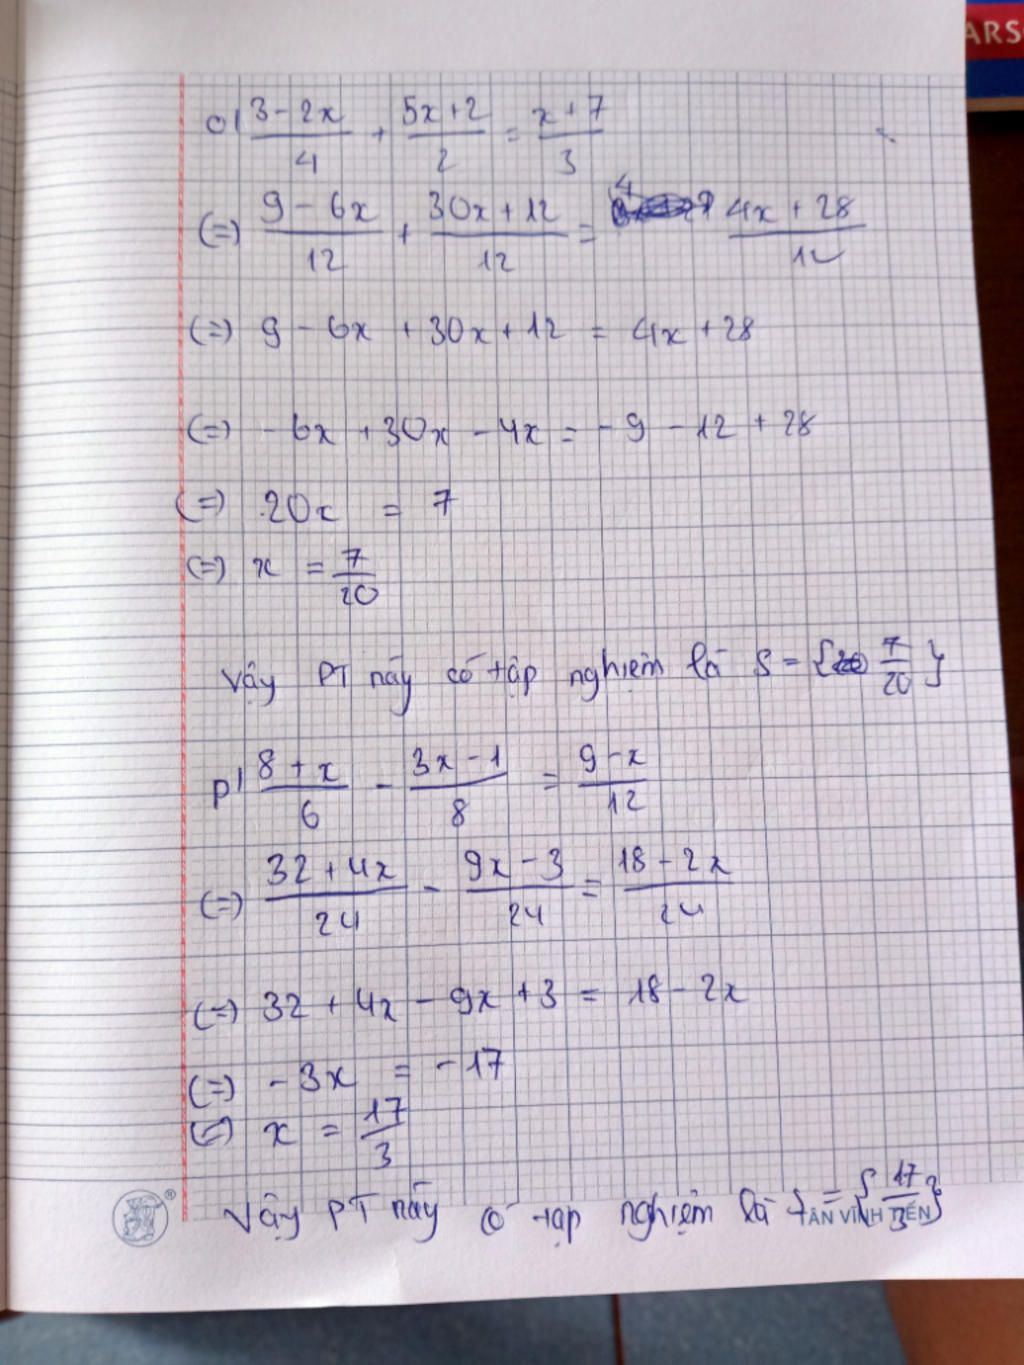 ARS
o| (3 - 2x)/4 + (5x + 2)/2 = (x + 7)/3
(=) (9 - 6x)/12 + (30x + 12)/12 = (4x + 28)/12
(=) 9 - 6x + 30x + 12 = 4x + 28
(=) - 6x + 30x - 4x = - 9 - 12 + 28
(=) 20x = 7
(=) x = 7/20
Vậy PT này có tập nghiệm là S = { 7/20 }
p| (8 + x)/6 - (3x - 1)/8 = (9 - x)/12
(=) (32 + 4x)/24 - (9x - 3)/24 = (18 - 2x)/24
(=) 32 + 4x - 9x + 3 = 18 - 2x
(=) - 3x = - 17
(=) x = 17/3
Vậy PT này có tập nghiệm là S = { 17/3 }
®
TÂN VĨNH TIẾN